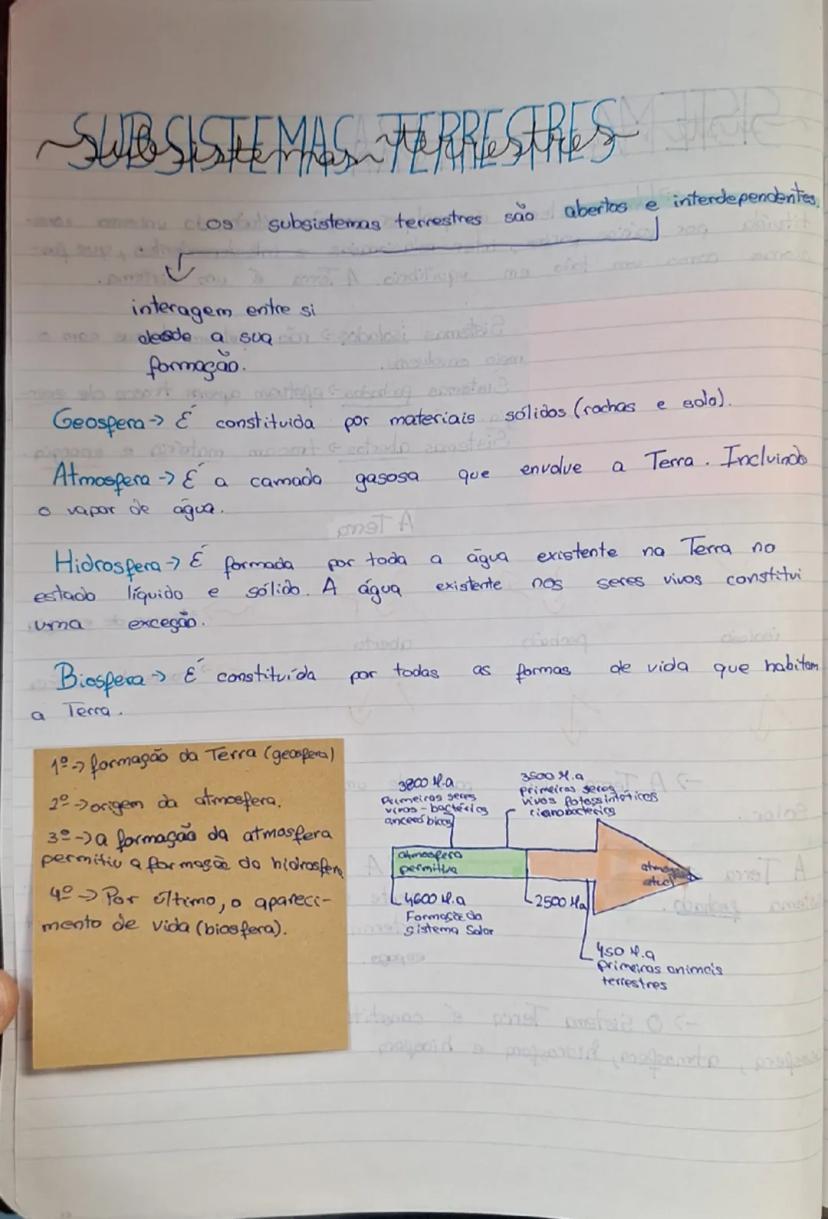 SUBSISTEMAS TERRESTRES
~Subsistemas terrestres~
os subsistemas terrestres são abertos e interdependentes.
interagem entre si
desde a sua
formação.
Geosfera-> É constituida por materiais sólidos (rochas e solo).
Atmosfera-> É a camada gasosa que envolve a Terra. Incluindo
o vapor de água.
Hidrosfera-> É formada por toda a água existente na Terra no
estado líquido e sólido. A água existente nos seres vivos constitui
uma exceção.
Biosfera-> É constituída por todas as formas de vida que habitam
a Terra.
1º-> formação da Terra (geosfera)
2º-> origem da atmosfera.
3º-> a formação da atmosfera
permitiu a formação da hidrosfera
4º-> Por último, o apareci-
mento de vida (biosfera).
3800 M.a
Primeiros seres
vivos - bactérias
3500 M.a
primeiros seres
vivos fotossintéticos
cianobactérias
atmosfera
permitiva
atmosfera
atual
4600 M.a
Formação do
Sistema Solar
2500 Ma
450 M.a
primeiros animais
terrestres